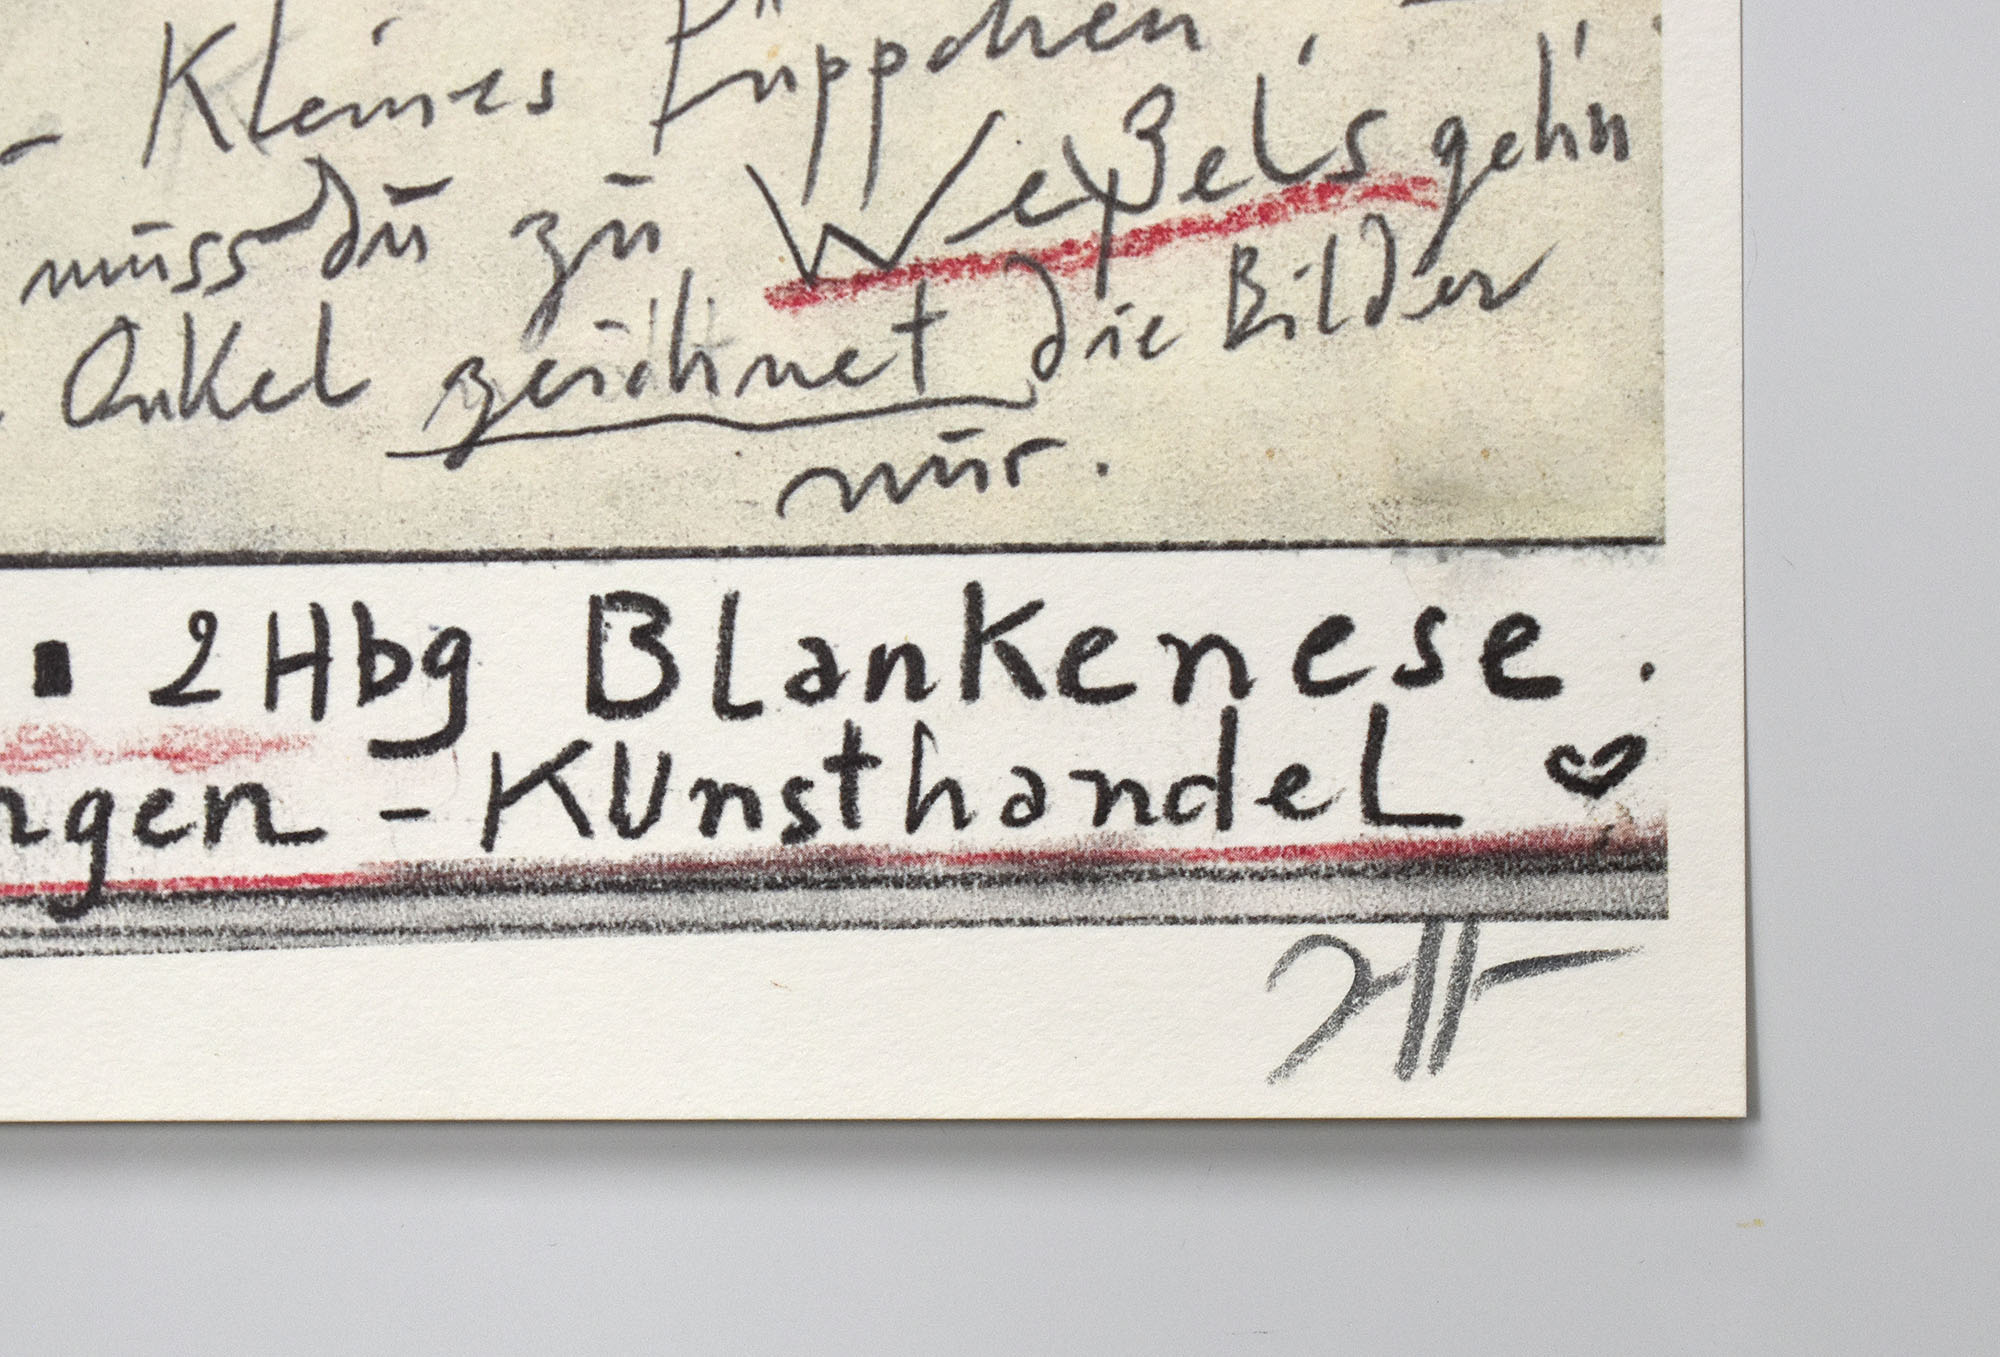 – Kleines Püppchen,
müss dü zü Weßel's geh'n
Onkel zeichnet die Bilder
nür.
▪ 2 Hbg Blankenese.
ngen - KUnsthandel